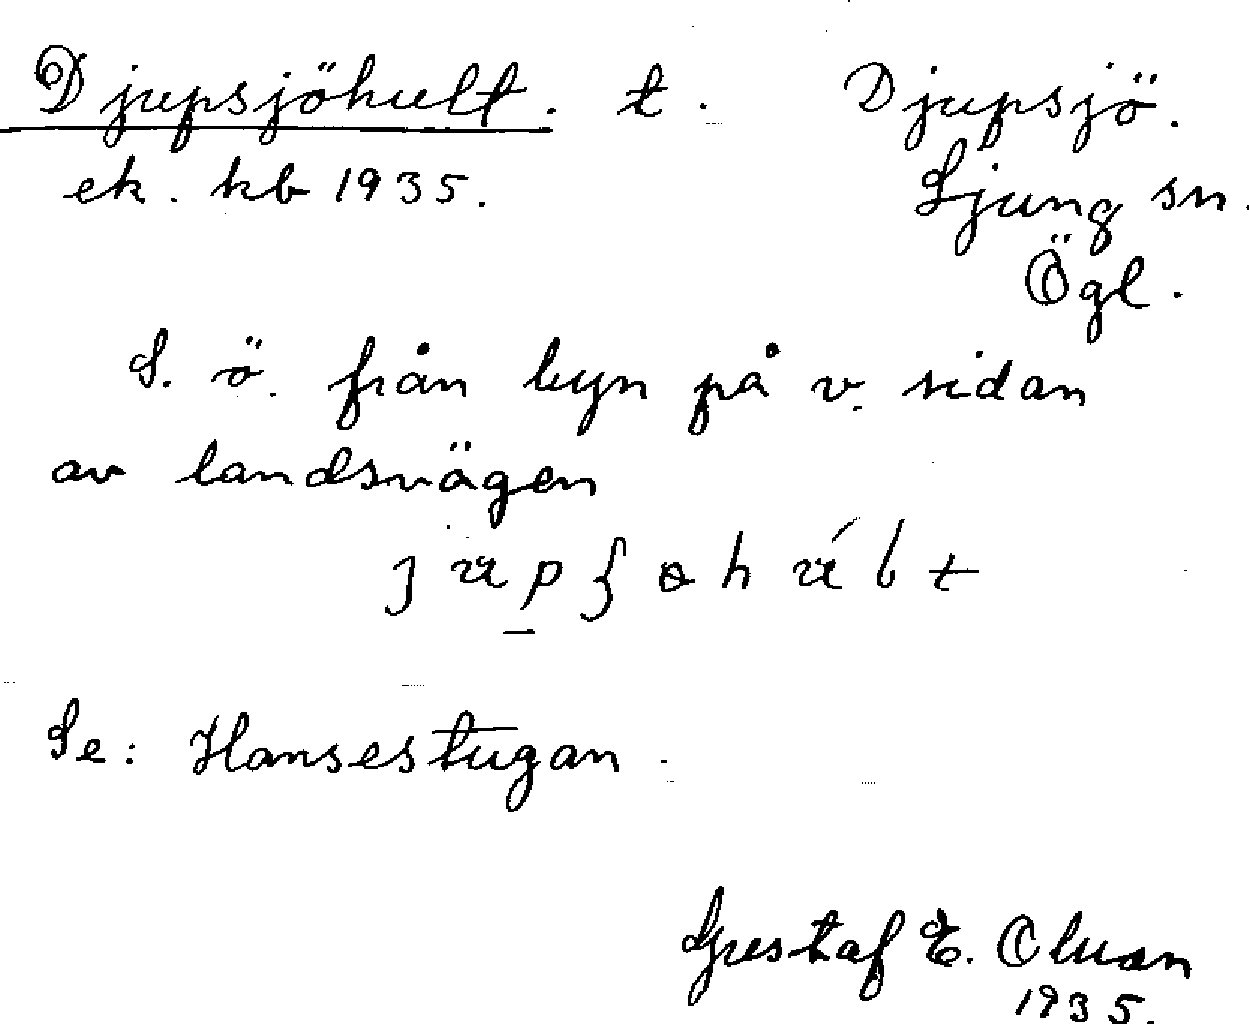 Djupsjöhult. t. Djupsjö.
ek. kb 1935. Ljung sn.
Ögl.
S. ö. från byn på v. sidan
av landsvägen
Se: Hansestugan.
Gustaf E.
1935.